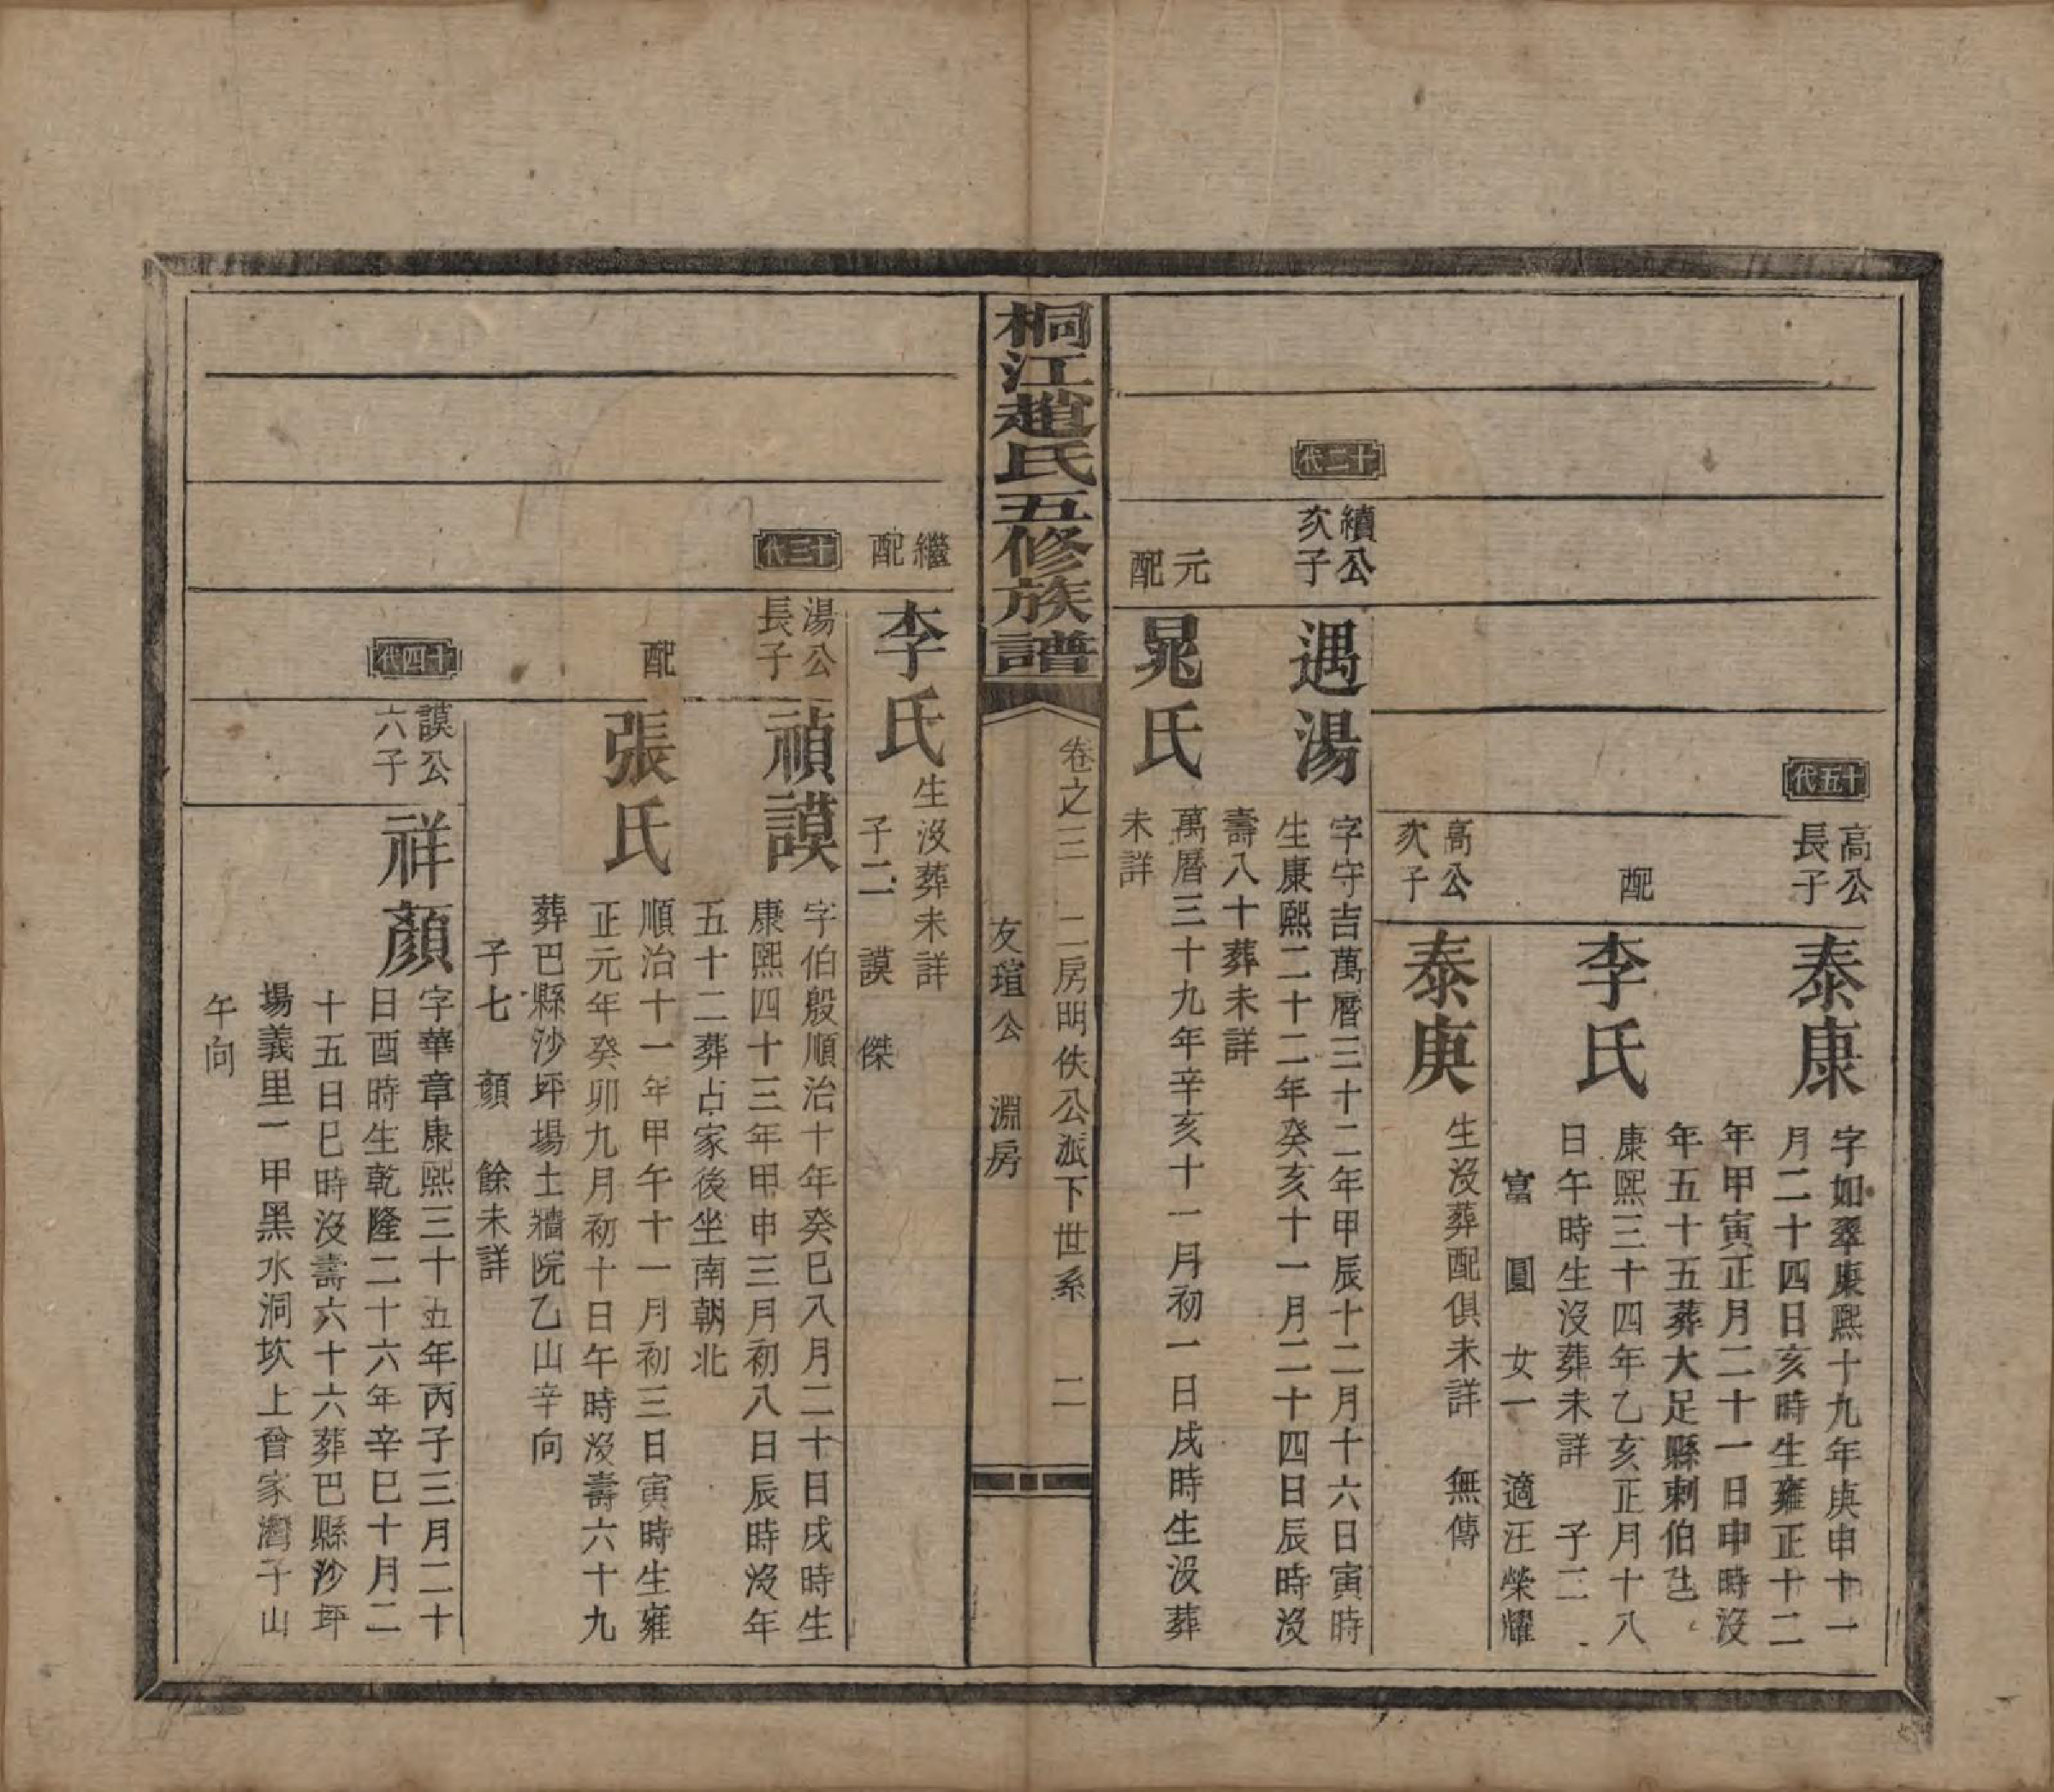 十五代
高公
長子
泰康
字如翠康熙十九年庚申十一
月二十四日亥時生雍正十二
年甲寅正月二十一日申時沒
年五十五葬大足縣刺伯邑
配
李氏
康熙三十四年乙亥正月十八
日午時生沒葬未詳 子二
富 圓 女一 適汪榮耀
高公
次子
泰庚
生沒葬配俱未詳 無傳
十二代
續公
次子
遇湯
字守吉萬曆三十二年甲辰十二月十六日寅時
生康熙二十二年癸亥十一月二十四日辰時沒
壽八十葬未詳
元
配
晁氏
萬曆三十九年辛亥十一月初一日戌時生沒葬
未詳
桐江趙氏五修族譜
卷之三 二房明佚公派下世系 二
友瑄公 淵房
繼
配
李氏
生沒葬未詳
子二 謨 傑
十三代
湯公
長子
禎謨
字伯殷順治十年癸巳八月二十日戌時生
康熙四十三年甲申三月初八日辰時沒年
五十二葬占家後坐南朝北
配
張氏
順治十一年甲午十一月初三日寅時生雍
正元年癸卯九月初十日午時沒壽六十九
葬巴縣沙坪場土牆院乙山辛向
子七 顏 餘未詳
十四代
謨公
六子
祥顏
字華章康熙三十五年丙子三月二十
日酉時生乾隆二十六年辛巳十月二
十五日巳時沒壽六十六葬巴縣沙坪
場義里一甲黑水洞坎上曾家灣子山
午向